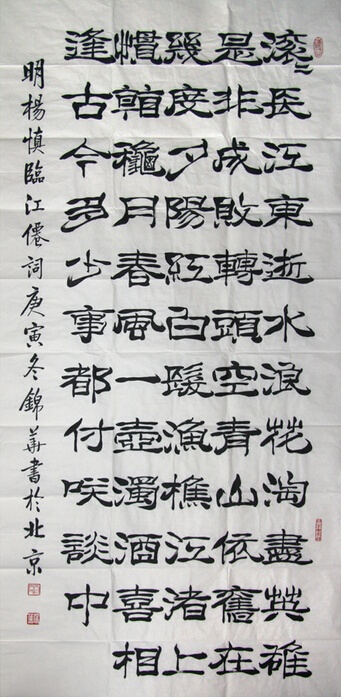 滚〻長江東逝水浪花淘盡英雄
是非成敗轉頭空青山依舊在
幾度夕陽紅白髮漁樵江渚上
慣看龝月春風一壺濁酒喜相
逢古今多少事都付咲談中
明楊慎臨江僊詞庚寅冬錦華書於北京